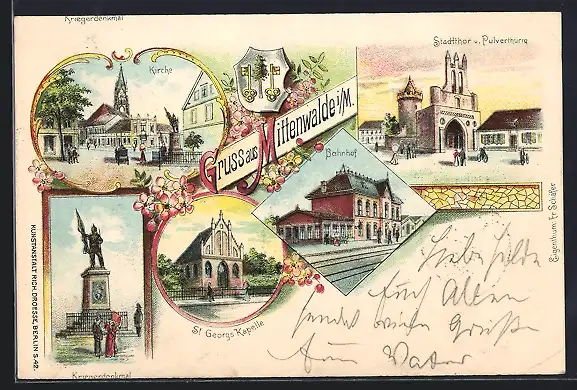 Kriegerdenkmal
Stadtthor u. Pulverthurm
Kirche
Gruss aus Mittenwalde i/M.
Bahnhof
St. Georgs Kapelle
Kriegerdenkmal
KUNSTANSTALT RICH. DROESSE, BERLIN S. 42.
Eigenthum Fr Schäffer
Liebe Hilde
Euch Allen
sendet viele Grüße
Euer Vater